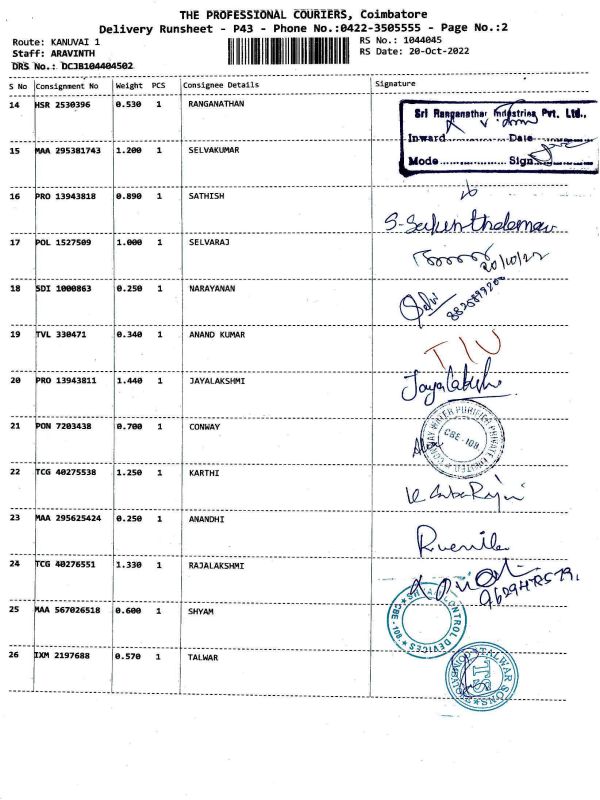 THE PROFESSIONAL COURIERS, Coimbatore
Delivery Runsheet - P43 - Phone No.:0422-3505555 - Page No.:2
Route: KANUVAI 1
RS No.: 1044045
Staff: ARAVINTH
RS Date: 20-Oct-2022
DRS No.: DCJB104404502
S No Consignment No Weight PCS Consignee Details Signature
14 HSR 2530396 0.530 1 RANGANATHAN
Sri Ranganathar Industries Pvt. Ltd.,
Inward Date
Mode Sign
15 MAA 295381743 1.200 1 SELVAKUMAR
16 PRO 13943818 0.890 1 SATHISH
17 POL 1527509 1.000 1 SELVARAJ
20/10/22
18 SDI 1000863 0.250 1 NARAYANAN
Selvi
19 TVL 330471 0.340 1 ANAND KUMAR
20 PRO 13943811 1.440 1 JAYALAKSHMI
Jayalakshmi
21 PON 7203438 0.700 1 CONWAY
CONWAY WATER PURIFIER PRIVATE LIMITED
CBE-108
22 TCG 40275538 1.250 1 KARTHI
23 MAA 295625424 0.250 1 ANANDHI
24 TCG 40276551 1.330 1 RAJALAKSHMI
25 MAA 567026518 0.600 1 SHYAM
CONTROL DEVICES
CBE-108
26 IXM 2197688 0.570 1 TALWAR
TALWAR SONS